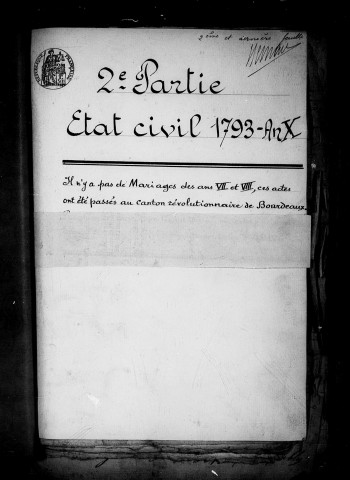 2ème et dernière feuille
2e Partie
Etat civil 1793-An X
Il n'y a pas de Mariages des ans VII et VIII, ces actes
ont été passés au canton révolutionnaire de Bourdeaux.